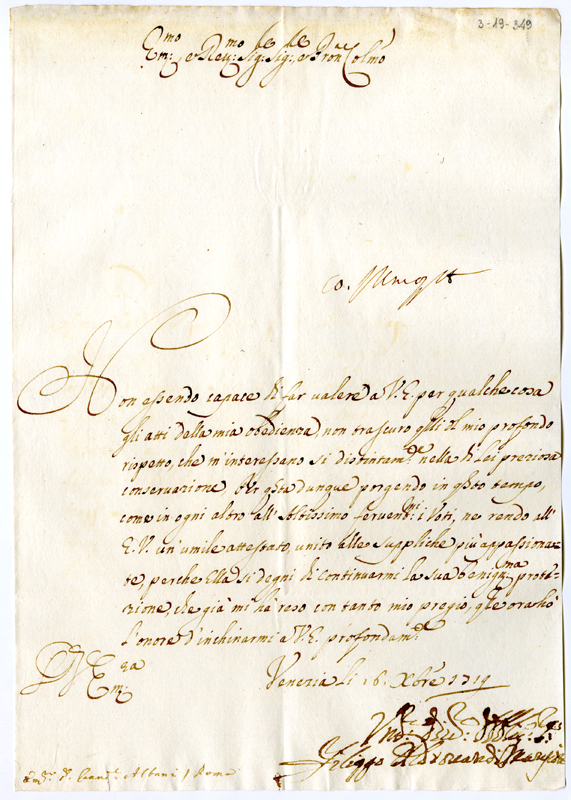 3-19-349
Em:mo e Rev:mo Sig:re Sig:re e Pron Colmo
Non essendo capace di far valere a V. E. per qualche cosa
gli atti della mia obedienza, non trascuro q'lli del mio profondo
rispetto, che m'interessano si distintam:te nella di Lei preziosa
conservazione. Per q'sta dunque porgendo in q'sto tempo,
come in ogni altro all'Altissimo ferventmi: i Voti, ne rendo all'
E. V. un'umile attestato, unito alle suppliche più appassiona-
te, perche Ella si degni di continuarmi la sua benigna prote-
zione, che già mi hà reso con tanto mio pregio, q'le ora hò
l'onore d'inchinarmi a V. E. profondam:te
Venezia li 16. Xbre 1719
D V Em:za
Filippo
Albani / Roma